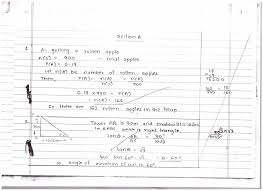 Section A
1. A = getting a rotten apple
n(S) = 900 - total apples
P(A) = 0.18
Let n(A) be number of rotten apples
Then, P(A) = n(A) / n(S) = n(A) / 900
0.18 × 900 = n(A)
n(A) = 162
So, there are 162 rotten apples in the heap.
2. Tower AB is
In ∆ABC which is right triangle,
tan θ =
tan θ = √3
tan 60° = √3 θ = 60°
So, angle of elevation of sun is 60°.